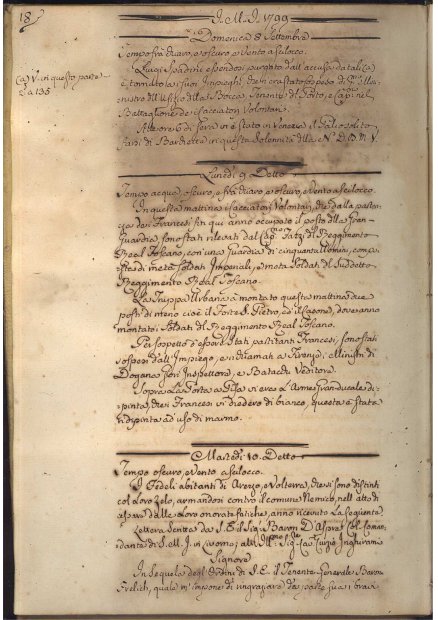 18
J. M. J. 1799
Domenica 8 Settembre
Tempo frà chiaro, e oscuro, e vento a scilocco.
Luigi Spadini essendosi purgato dall'accusa datali (a)
(a) V. in questo parte
è tornato a' suoi Impieghi, che li era stato sospeso di
2ª a 135
nistro dell'Ufizio della Bocca, Tenente di Porto, e Cap:no nel
Battaglione de' Cacciatori Volontari.
Alle ore 6 di sera vi è stato in Venezia il Palio solito
farsi di Barchetta in questa Solennità della N. di M. V.
Lunedì 9 Detto
Tempo acqua, oscuro, e frà chiaro, e oscuro, e vento a scilocco.
In questa mattina i Cacciatori Volontari, che dalla parten-
za dei Francesi fin qui anno occupato il posto della Gran-
Guardia sono stati rilevati dal Cap:no del Reggimento
Real Toscano, con una Guardia di cinquanta Uomini, compo-
sta di metà Soldati Imperiali, e metà Soldati di suddetto
Reggimento Real Toscano.
La Truppa Urbana à montato questa mattina due
posti di meno cioè il Forte S. Pietro, ed il Casone, dove anno
montato i Soldati del Reggimento Real Toscano.
Per sospetto d'essersi stati partitanti Francesi, sono stati
sospesi dall'Impiego, e richiamati a Firenze, i Ministri di
Dogana Fiori Inspettore, e Veditore.
Sopra la Porta a Pisa vi era l'Arme Granducale di-
pinta, che i Francesi vi diedero di bianco, questa è stata
ridipinta ad uso di marmo.
Martedì 10. Detto
Tempo oscuro, e vento a scilocco.
I Fedeli abitanti di Arezzo, e Volterra, che si sono distinti
col loro zelo, armandosi contro il comune Nemico, nell'atto di
riposare dalle loro onorate fatiche, anno ricevuto la seguente
Lettera scritta da S. E. il Sig: Baron D'Aspre Col. Coman-
dante di S. M. I. in Livorno; all' Ill:mo Sig:re Curzio Inghirami
Signore
In sequela degli Ordini di S. E. il Tenente-Generale Baron
Frelich, quale m'impone di ringraziare da parte sua i bravi